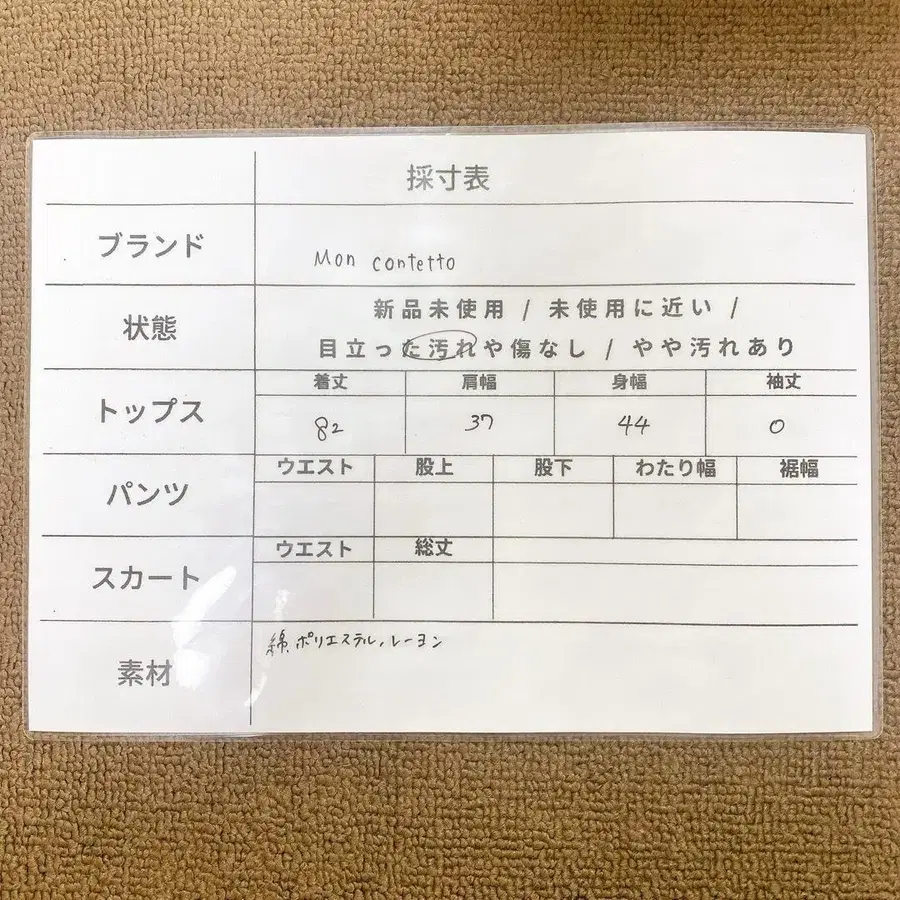 採寸表
ブランド
Mon contetto
状態
新品未使用 / 未使用に近い /
目立った汚れや傷なし / やや汚れあり
トップス
着丈 肩幅 身幅 袖丈
82 37 44 0
パンツ
ウエスト 股上 股下 わたり幅 裾幅
スカート
ウエスト 総丈
素材
綿、ポリエステル、レーヨン